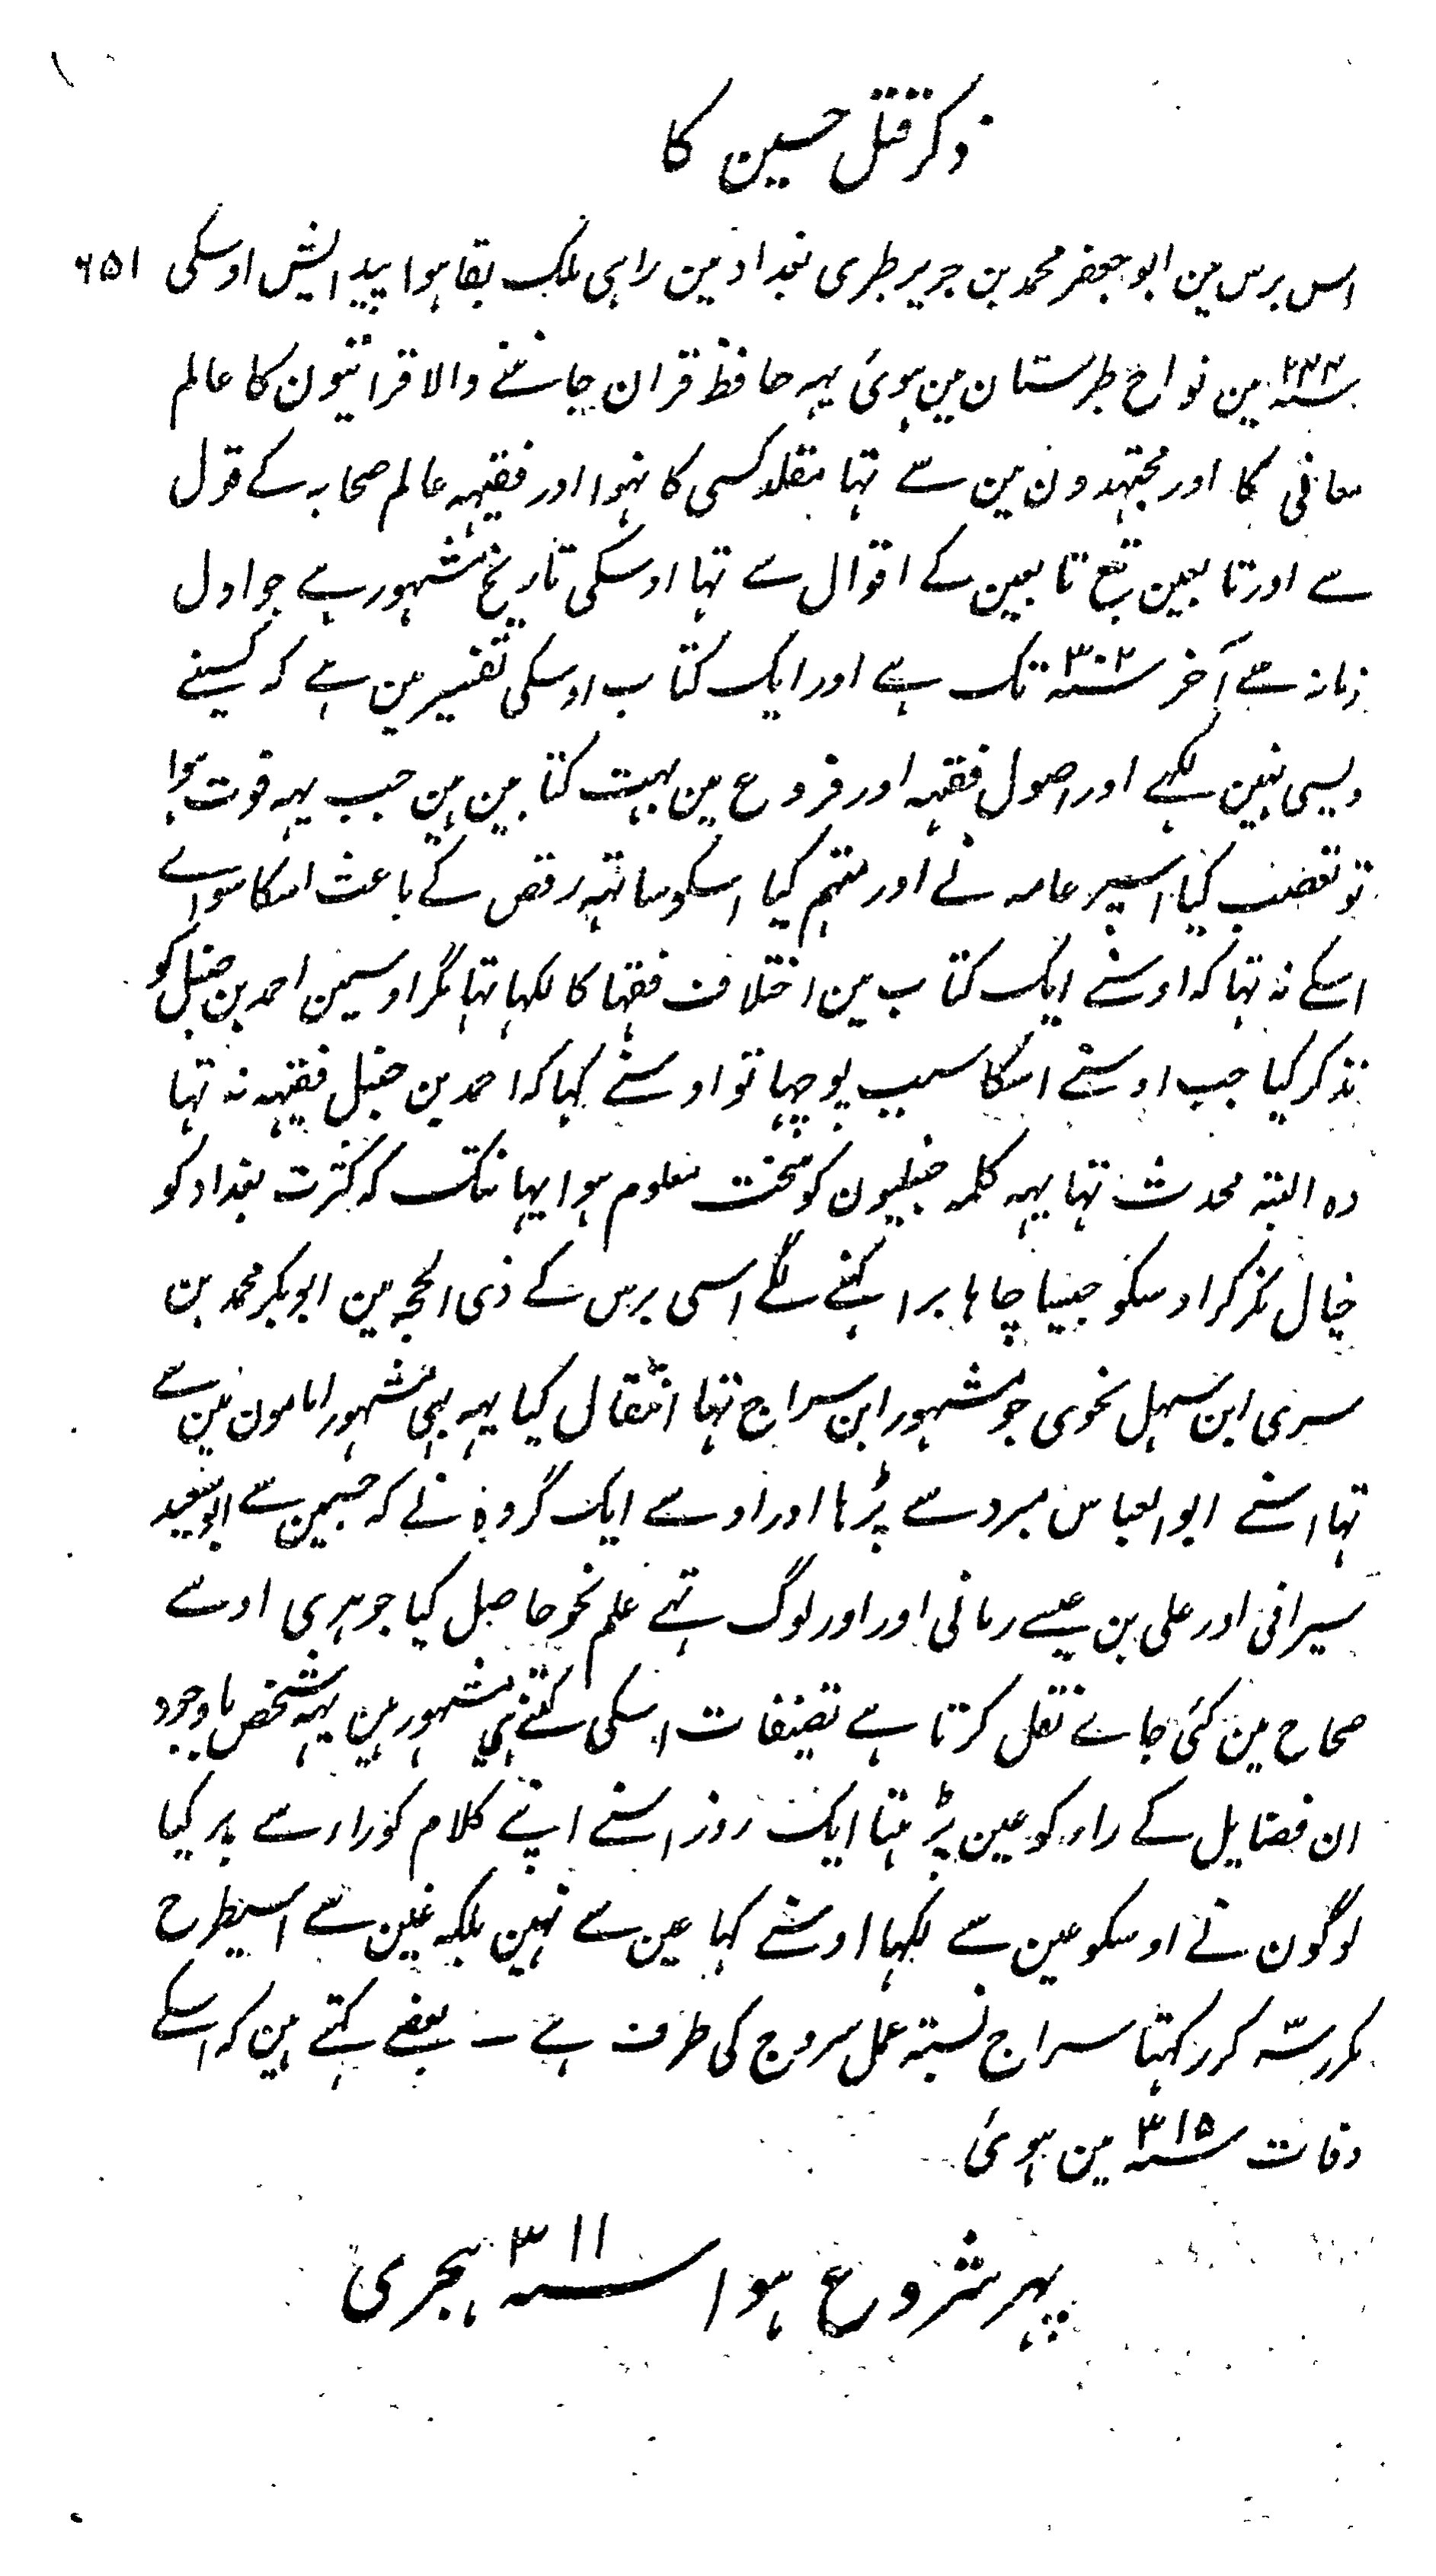 ذکر قتل حسین کا
اس برس مین ابو جعفر محمد بن جریر طبری بغداد مین راہی ملک بقا ہوا پیدایش اوسکی ۶۵۱
سنہ۲۲۴ مین نواح طبرستان مین ہوئی یہہ حافظ قران جاننے والا قرائتون کا عالم
معانی کا اور مجتہدون مین سے تہا مقلد کسی کا نہوا اور فقیہہ عالم صحابہ کے قول
سے اور تابعین تبع تابعین کے اقوال سے تہا اوسکی تاریخ مشہور ہے جو اول
زمانہ سے آخر سنہ۳۰۲ تک ہے اور ایک کتاب اوسکی تفسیر مین ہے کہ کسینے
ویسی نہین لکہے اور اصول فقہہ اور فروع مین بہت کتابین ہین جب یہہ فوت ہوا
تو تعصب کیا اسپر عامہ نے اور متہم کیا اسکو ساتہہ رفض کے باعث اسکا سواے
اسکے نہ تہا کہ اوسنے ایک کتاب مین اختلاف فقہا کا لکہا تہا مگر اوسمین احمد بن حنبل کو
نذکر کیا جب اوسنے اسکا سبب پوچہا تو اوسنے کہا کہ احمد بن حنبل فقیہہ نہ تہا
وہ البتہ محدث تہا یہہ کلمہ حنبلیون کو سخت معلوم ہوا یہانتک کہ کثرت بغداد کو
خیال نکر کر اوسکو جیسا چاہا برا کہنے لگے اسی برس کے ذی الحجہ مین ابوبکر محمد بن
سری ابن سہل نحوی جو مشہور ابن سراج تہا انتقال کیا یہہ بہی مشہور امامون مین سے
تہا اسنے ابو العباس مبرد سے پڑہا اور اوسے ایک گروہ نے کہ جسمین سے ابوسعید
سیرافی اور علی بن عیسے رمانی اور اور لوگ تہے علم نحو حاصل کیا جوہری اوسے
صحاح مین کئی جاے نقل کرتا ہے تصنیفات اسکی کتنے ہی مشہور ہین یہہ شخص باوجود
ان فضایل کے راء کو عین پڑہتا ایک روز اسنے اپنے کلام کو راء سے پر کیا
لوگون نے اوسکو عین سے لکہا اوسنے کہا عین سے نہین بلکہ غین سے اسیطرح
مکرر سہ کرر کہتا سراج نسبتہ عمل سروج کی طرف ہے ـ بعضے کہتے ہین کہ اسکے
وفات سنہ۳۱۵ مین ہوئی
پہر شروع ہوا سنہ۳۱۱ ہجری